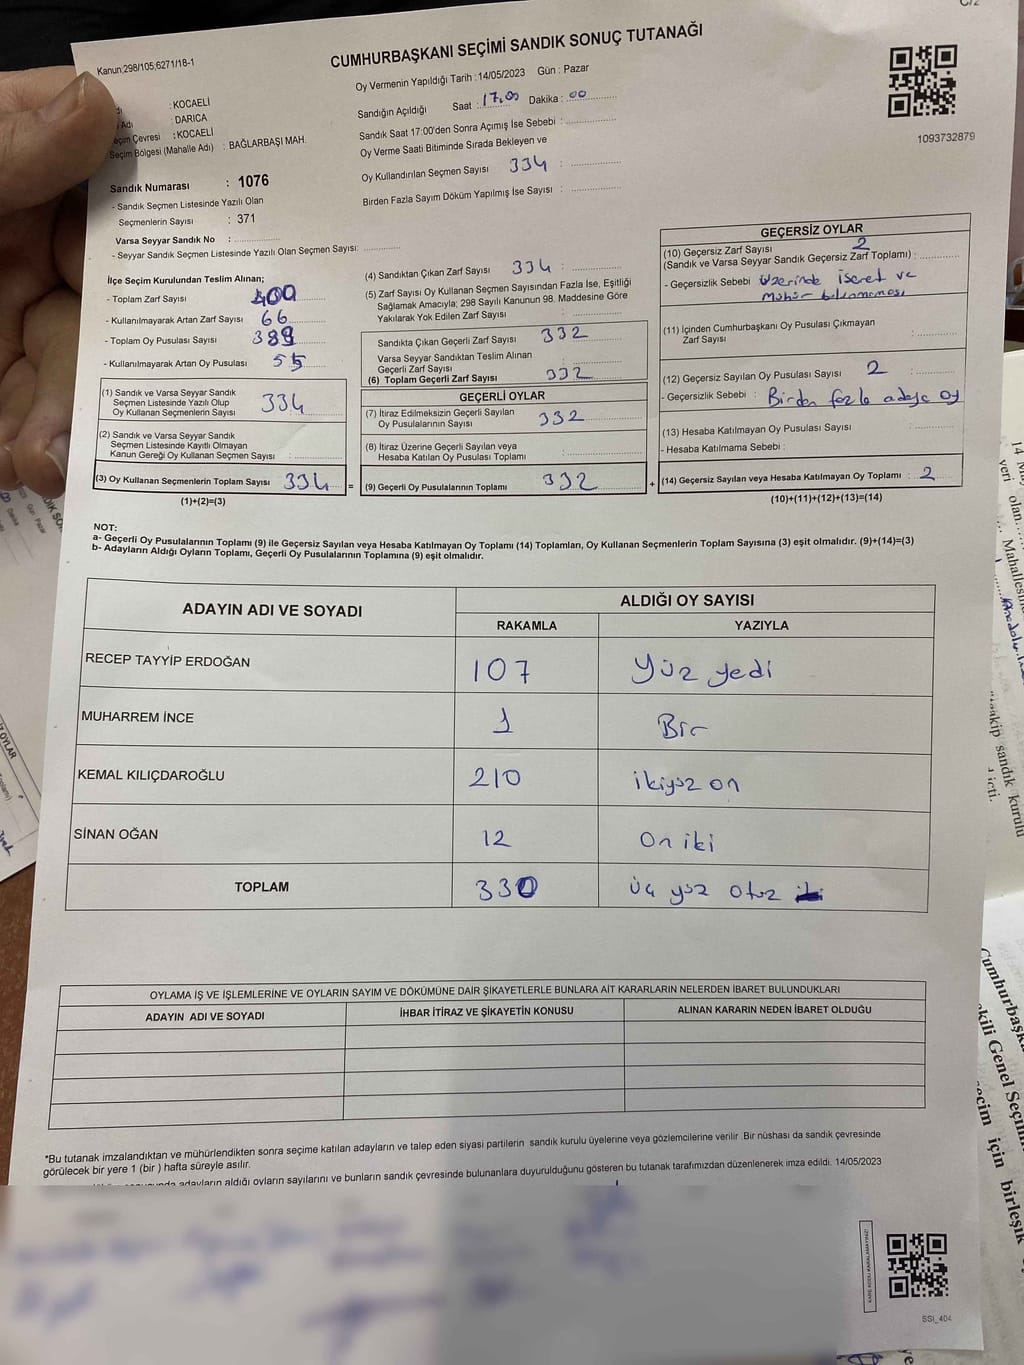 Kanun;298/105,6271/18-1
CUMHURBAŞKANI SEÇİMİ SANDIK SONUÇ TUTANAĞI
: KOCAELİ
Adı : DARICA
Seçim Çevresi : KOCAELİ
Seçim Bölgesi (Mahalle Adı) : BAĞLARBAŞI MAH.
Sandık Numarası : 1076
- Sandık Seçmen Listesinde Yazılı Olan
Seçmenlerin Sayısı : 371
Varsa Seyyar Sandık No :
- Seyyar Sandık Seçmen Listesinde Yazılı Olan Seçmen Sayısı:
Oy Vermenin Yapıldığı Tarih : 14/05/2023 Gün : Pazar
Sandığın Açıldığı Saat : 17.00 Dakika : 00
Sandık Saat 17:00'den Sonra Açımış İse Sebebi :
Oy Verme Saati Bitiminde Sırada Bekleyen ve
Oy Kullandırılan Seçmen Sayısı 334 :
Birden Fazla Sayım Döküm Yapılmış İse Sayısı :
1093732879
İlçe Seçim Kurulundan Teslim Alınan;
- Toplam Zarf Sayısı 400
- Kullanılmayarak Artan Zarf Sayısı 66
- Toplam Oy Pusulası Sayısı 389
- Kullanılmayarak Artan Oy Pusulası 55
(1) Sandık ve Varsa Seyyar Sandık
Seçmen Listesinde Yazılı Olup
Oy Kullanan Seçmenlerin Sayısı 334
(2) Sandık ve Varsa Seyyar Sandık
Seçmen Listesinde Kayıtlı Olmayan
Kanun Gereği Oy Kullanan Seçmen Sayısı :
(3) Oy Kullanan Seçmenlerin Toplam Sayısı 334 =
(1)+(2)=(3)
(4) Sandıktan Çıkan Zarf Sayısı 334 :
(5) Zarf Sayısı Oy Kullanan Seçmen Sayısından Fazla İse, Eşitliği
Sağlamak Amacıyla; 298 Sayılı Kanunun 98. Maddesine Göre
Yakılarak Yok Edilen Zarf Sayısı :
Sandıkta Çıkan Geçerli Zarf Sayısı 332
Varsa Seyyar Sandıktan Teslim Alınan
Geçerli Zarf Sayısı :
(6) Toplam Geçerli Zarf Sayısı 332
GEÇERLİ OYLAR
(7) İtiraz Edilmeksizin Geçerli Sayılan
Oy Pusulalarının Sayısı 332
(8) İtiraz Üzerine Geçerli Sayılan veya
Hesaba Katılan Oy Pusulası Toplamı :
(9) Geçerli Oy Pusulalarının Toplamı 332 +
GEÇERSİZ OYLAR
(10) Geçersiz Zarf Sayısı 2
(Sandık ve Varsa Seyyar Sandık Geçersiz Zarf Toplamı) :
- Geçersizlik Sebebi üzerinde işaret ve
mühür bulunmaması
(11) İçinden Cumhurbaşkanı Oy Pusulası Çıkmayan
Zarf Sayısı :
(12) Geçersiz Sayılan Oy Pusulası Sayısı 2 :
- Geçersizlik Sebebi : Birden fazla adaya oy
(13) Hesaba Katılmayan Oy Pusulası Sayısı :
- Hesaba Katılmama Sebebi :
(14) Geçersiz Sayılan veya Hesaba Katılmayan Oy Toplamı : 2
(10)+(11)+(12)+(13)=(14)
NOT:
a- Geçerli Oy Pusulalarının Toplamı (9) ile Geçersiz Sayılan veya Hesaba Katılmayan Oy Toplamı (14) Toplamları, Oy Kullanan Seçmenlerin Toplam Sayısına (3) eşit olmalıdır. (9)+(14)=(3)
b- Adayların Aldığı Oyların Toplamı, Geçerli Oy Pusulalarının Toplamına (9) eşit olmalıdır.
ADAYIN ADI VE SOYADI ALDIĞI OY SAYISI
RAKAMLA YAZIYLA
RECEP TAYYİP ERDOĞAN 107 Yüz yedi
MUHARREM İNCE 1 Bir
KEMAL KILIÇDAROĞLU 210 ikiyüz on
SİNAN OĞAN 12 On iki
TOPLAM 330 üç yüz otuz
OYLAMA İŞ VE İŞLEMLERİNE VE OYLARIN SAYIM VE DÖKÜMÜNE DAİR ŞİKAYETLERLE BUNLARA AİT KARARLARIN NELERDEN İBARET BULUNDUKLARI
ADAYIN ADI VE SOYADI İHBAR İTİRAZ VE ŞİKAYETİN KONUSU ALINAN KARARIN NEDEN İBARET OLDUĞU
*Bu tutanak imzalandıktan ve mühürlendikten sonra seçime katılan adayların ve talep eden siyasi partilerin sandık kurulu üyelerine veya gözlemcilerine verilir .Bir nüshası da sandık çevresinde
görülecek bir yere 1 (bir ) hafta süreyle asılır.
adayların aldığı oyların sayılarını ve bunların sandık çevresinde bulunanlara duyurulduğunu gösteren bu tutanak tarafımızdan düzenlenerek imza edildi. 14/05/2023
SSİ_404